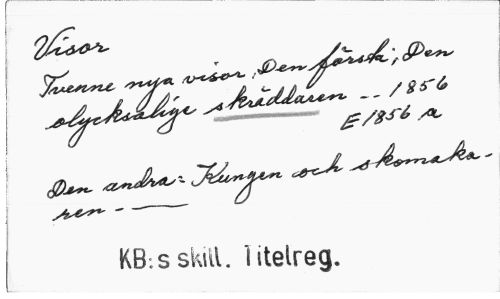 Visor
Tvenne nya visor, Den första; Den
olycksalige skräddaren -- 1856
E 1856 a
Den andra: Kungen och skomaka-
ren - —
KB:s skill. Titelreg.